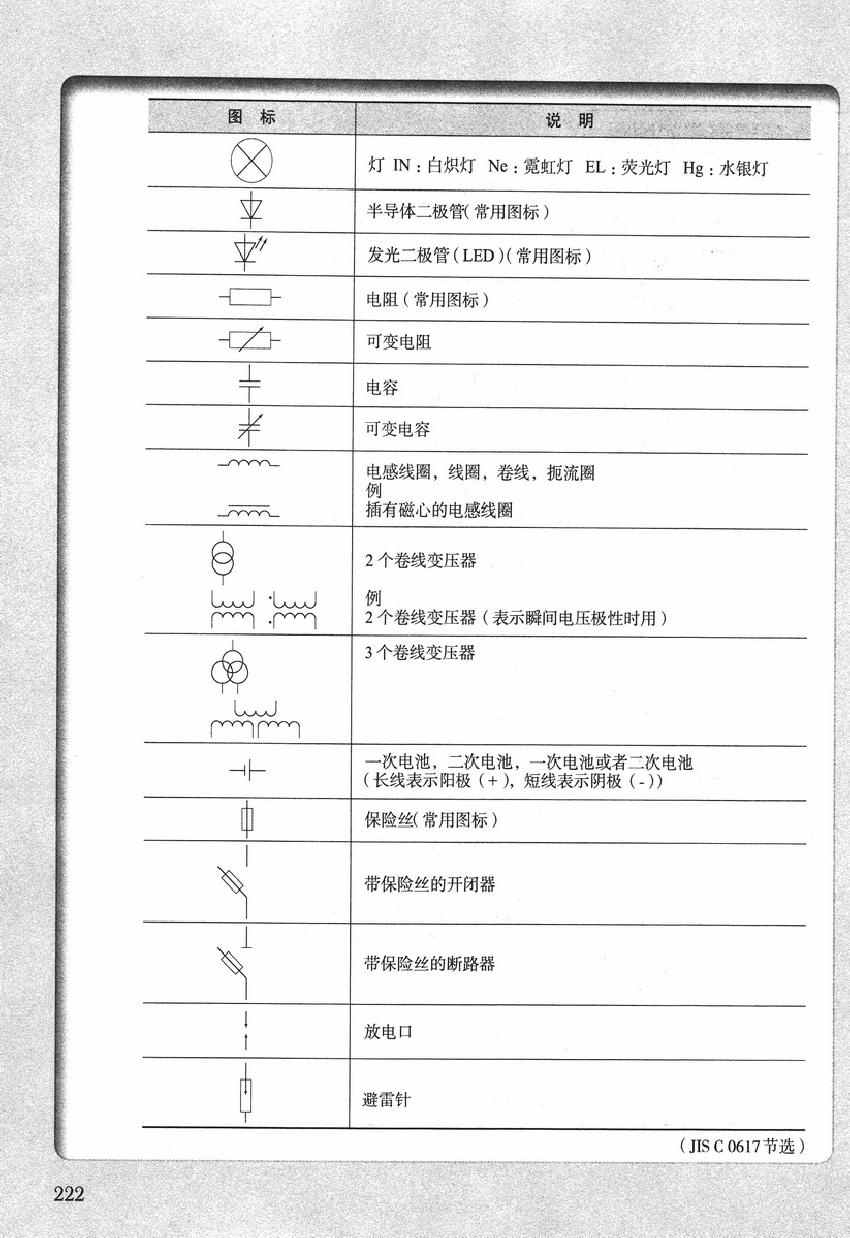 图 标 说 明
灯 IN：白炽灯 Ne：霓虹灯 EL：荧光灯 Hg：水银灯
半导体二极管（常用图标）
发光二极管（LED）（常用图标）
电阻（常用图标）
可变电阻
电容
可变电容
电感线圈，线圈，卷线，扼流圈
例
插有磁心的电感线圈
2 个卷线变压器
例
2 个卷线变压器（表示瞬间电压极性时用）
3 个卷线变压器
一次电池，二次电池，一次电池或者二次电池
（长线表示阳极（+），短线表示阴极（-））
保险丝（常用图标）
带保险丝的开闭器
带保险丝的断路器
放电口
避雷针
（JIS C 0617节选）
222